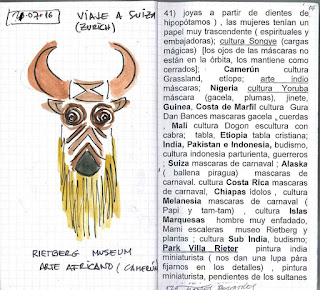 21-07-16
VIAJE A SUIZA
(ZURICH)
RIETBERG MUSEUM
ARTE AFRICANO (CAMERÚN
41) joyas a partir de dientes de
hipopótamos ) , las mujeres tenían un
papel muy trascendente ( espirituales y
embajadoras); cultura Songye (cargas
mágicas) [los ojos de las máscaras no
están en la órbita, los mantiene como
cerrados]; Camerún cultura
Grassland, etíope; arte indio
máscaras; Nigeria cultura Yoruba
máscara (gacela, plumas), jinete,
Guinea, Costa de Marfil cultura Gura
Dan Bances mascaras gacela , cuerdas
, Mali cultura Dogon escultura con
cabra; tabla, Etiopia tabla cristiana;
India, Pakistan e Indonesia, budismo,
cultura indonesia parturienta, guerreros
, Suiza mascaras de carnaval ; Alaska
( ballena piragua) mascaras de
carnaval. cultura Costa Rica mascaras
de carnaval, Chiapas ídolos , cultura
Melanesia mascaras de carnaval (
Papi y tam-tam) , cultura Islas
Marquesas hombre muy enfadado,
Mami escaleras museo Rietberg y
plantas ; cultura Sub India, budismo;
Park Villa Rieter pintura india
miniaturista ( nos dan una lupa para
fijarnos en los detalles) , pintura
miniaturista, pendientes de los sultanes